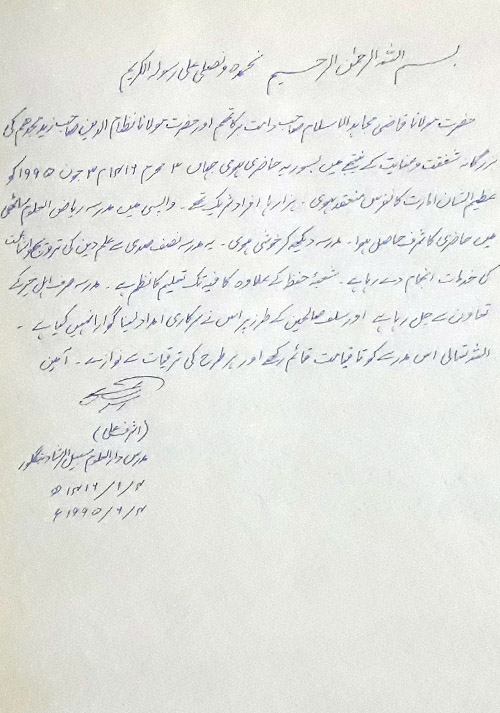 بسم اللہ الرحمٰن الرحیم نحمدہ و نصلی علی رسولہ الکریم
حضرت مولانا قاضی مجاہد الاسلام صاحب دامت برکاتہم اور حضرت مولانا نظام الدین صاحب زید مجدہم کی
بزرگانہ شفقت و عنایت کے نتیجے میں حاضری ہوئی جہاں ۳ محرم ۱۴۱۶ھ م ۳ جون ۱۹۹۵ کو
عظیم الشان امارت کانفرنس منعقد ہوئی۔ ہزارہا افراد شریک تھے۔ واپسی میں مدرسہ ریاض العلوم ساٹھی
میں حاضری کا شرف حاصل ہوا۔ مدرسہ دیکھ کر خوشی ہوئی۔ یہ مدرسہ نصف صدی سے علم دین کی ترویج و اشاعت
کی خدمات انجام دے رہا ہے۔ شعبۂ حفظ کے علاوہ کافیہ تک تعلیم کا نظم ہے۔ مدرسہ صرف اہل خیر کے
تعاون سے چل رہا ہے اور سلف صالحین کے طرز پر اس نے سرکاری امداد لینا گوارا نہیں کیا ہے۔
اللہ تعالی اس مدرسے کو تا قیامت قائم رکھے اور ہر طرح کی ترقیات سے نوازے۔ آمین
(اشرف علی)
مدرس دار العلوم سبیل الرشاد بنگلور
۴/۱/۱۴۱۶ھ
۴/۶/۱۹۹۵ء